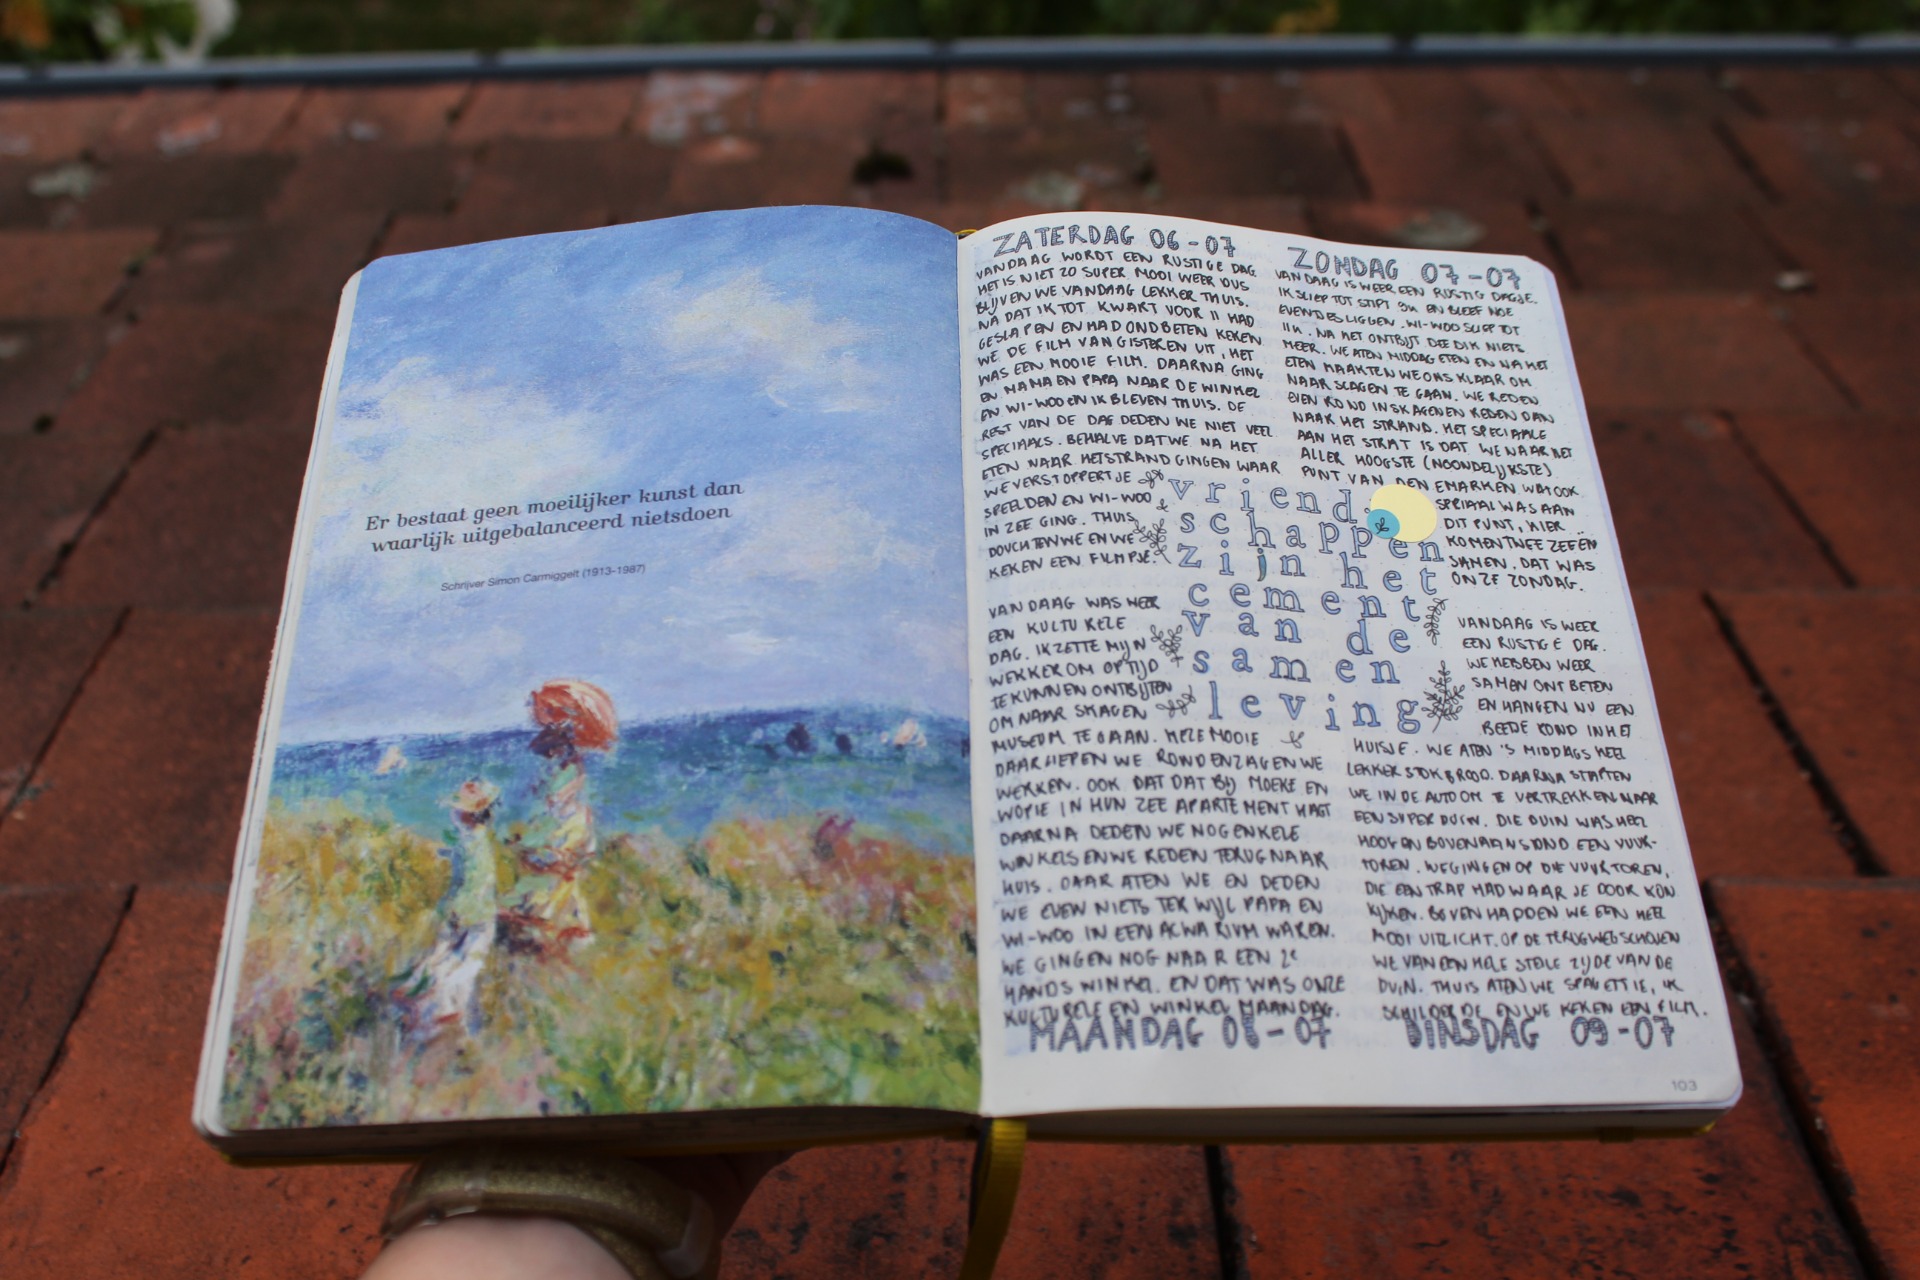 Er bestaat geen moeilijker kunst dan
waarlijk uitgebalanceerd nietsdoen
Schrijver Simon Carmiggelt (1913-1987)
ZATERDAG 06-07
VANDAAG WORDT EEN RUSTIGE DAG
HET IS NIET ZO SUPER MOOI WEER DUS
BLIJVEN WE VANDAAG LEKKER THUIS.
NA DAT IK TOT KWART VOOR 11 HAD
GESLAPEN EN HAD ONDBETEN KEKEN
WE DE FILM VAN GISTEREN UIT, HET
WAS EEN MOOIE FILM. DAARNA GING
EN MAMA EN PAPA NAAR DE WINKEL
EN WI-WOO EN IK BLEVEN THUIS. DE
REST VAN DE DAG DEDEN WE NIET VEEL
SPECIAALS. BEHALVE DAT WE NA HET
ETEN NAAR HET STRAND GINGEN WAAR
WE VERSTOPPERTJE
SPEELDEN EN WI-WOO
IN ZEE GING. THUIS
DOUCHTEN WE EN WE
KEKEN EEN FILMPJE.
ZONDAG 07-07
VANDAAG IS WEER EEN RUSTIG DAGJE.
IK SLIEP TOT STIPT 9U EN BLEEF NOG
EVENTJES LIGGEN. WI-WOO SLIEP TOT
11U. NA HET ONTBIJT DEE DIK NIETS
MEER. WE ATEN MIDDAG ETEN EN NA HET
ETEN MAAKTEN WE ONS KLAAR OM
NAAR SKAGEN TE GAAN. WE REDEN
EVEN ROND IN SKAGEN EN REDEN DAN
NAAR HET STRAND. HET SPECIAALE
AAN HET STRAT IS DAT WE NAAR HET
ALLER HOOGSTE (NOONDELIJKSTE)
PUNT VAN DENEMARKEN WAT OOK
SPECIAAL WAS AAN
DIT PUNT, HIER
KOMEN TWEE ZEEËN
SAMEN, DAT WAS
ONZE ZONDAG.
vriend.
schappen
zijn het
cement
van de
samen
leving
VANDAAG WAS WEER
EEN KULTURELE
DAG. IK ZETTE MIJN
WEKKER OM OP TIJD
TE KUNNEN ONTBIJTEN
OM NAAR SKAGEN
MUSEUM TE GAAN. HELE MOOIE
DAAR LIEPEN WE ROND EN ZAGEN WE
WERKEN. OOK DAT DAT BIJ MOEKE EN
WOPIE IN HUN ZEE APARTEMENT HAGT
DAARNA DEDEN WE NOG ENKELE
WINKELS EN WE REDEN TERUG NAAR
HUIS. DAAR ATEN WE EN DEDEN
WE EVEN NIETS TERWIJL PAPA EN
WI-WOO IN EEN ACWARIUM WAREN.
WE GINGEN NOG NAAR EEN 2e
HANDS WINKEL. EN DAT WAS ONZE
KULTURELE EN WINKEL MAANDAG.
MAANDAG 08-07
VANDAAG IS WEER
EEN RUSTIGE DAG.
WE HEBBEN WEER
SAMEN ONTBETEN
EN HANGEN NU EEN
BEETJE ROND IN HET
HUISJE. WE ATEN 'S MIDDAGS HEEL
LEKKER STOKBROOD. DAARNA STAPTEN
WE IN DE AUTO OM TE VERTREKKEN NAAR
EEN SUPER DUIN. DIE DUIN WAS HEEL
HOOG EN BOVENAAN STOND EEN VUUR-
TOREN. WE GINGEN OP DIE VUURTOREN,
DIE EEN TRAP HAD WAAR JE DOOR KON
KIJKEN. BOVEN HADDEN WE EEN HEEL
MOOI UITZICHT. OP DE TERUGWEG SCHOVEN
WE VAN EEN HELE STEILE ZIJDE VAN DE
DUIN. THUIS ATEN WE SPAGETTIE, IK
SCHILDERDE EN WE KEKEN EEN FILM.
DINSDAG 09-07
103